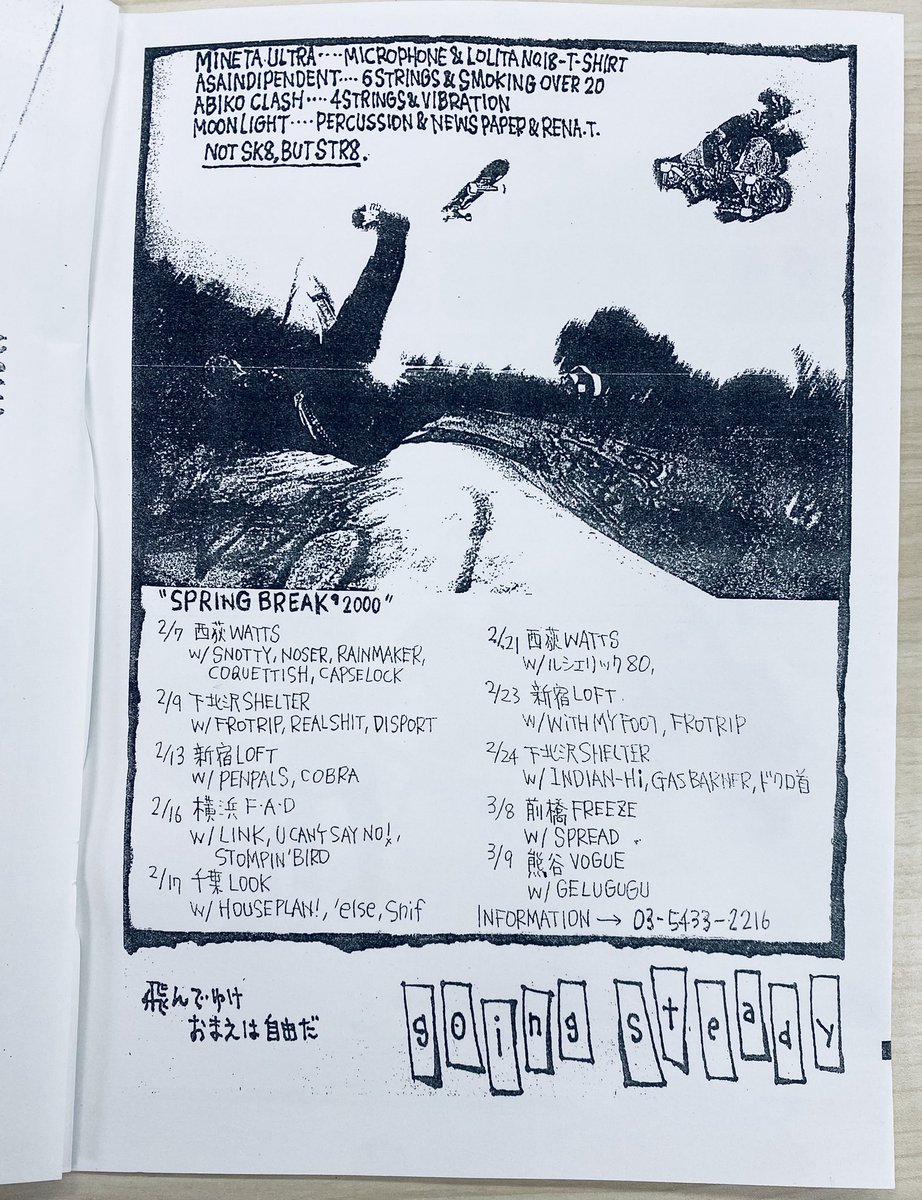 MINETA ULTRA····MICROPHONE & LOLITA NO18-T-SHIRT
ASAINDIPENDENT···6STRINGS & SMOKING OVER 20
ABIKO CLASH····4STRINGS&VIBRATION
MOON LIGHT····PERCUSSION & NEWS PAPER & RENA.T.
NOT SK8, BUT STR8.
"SPRING BREAK' 2000"
2/7 西荻WATTS
W/ SNOTTY, NOSER, RAINMAKER,
COQUETTISH, CAPSELOCK
2/9 下北沢SHELTER
W/ FROTRIP, REALSHIT, DISPORT
2/13 新宿LOFT
W/ PENPALS, COBRA
2/16 横浜 F·A·D
W/ LINK, U CAN'T SAY NO!,
STOMPIN'BIRD
2/17 千葉LOOK
W/ HOUSEPLAN!, 'else, Snif
2/21 西荻WATTS
W/ルシェリック80,
2/23 新宿LOFT.
W/WITH MY FOOT, FROTRIP
2/24 下北沢SHELTER
W/INDIAN-Hi, GAS BARNER, ドクロ首
3/8 前橋FREEZE
W/ SPREAD
3/9 熊谷 VOGUE
W/ GELUGUGU
INFORMATION → 03-5433-2216
飛んでゆけ
おまえは自由だ
going steady